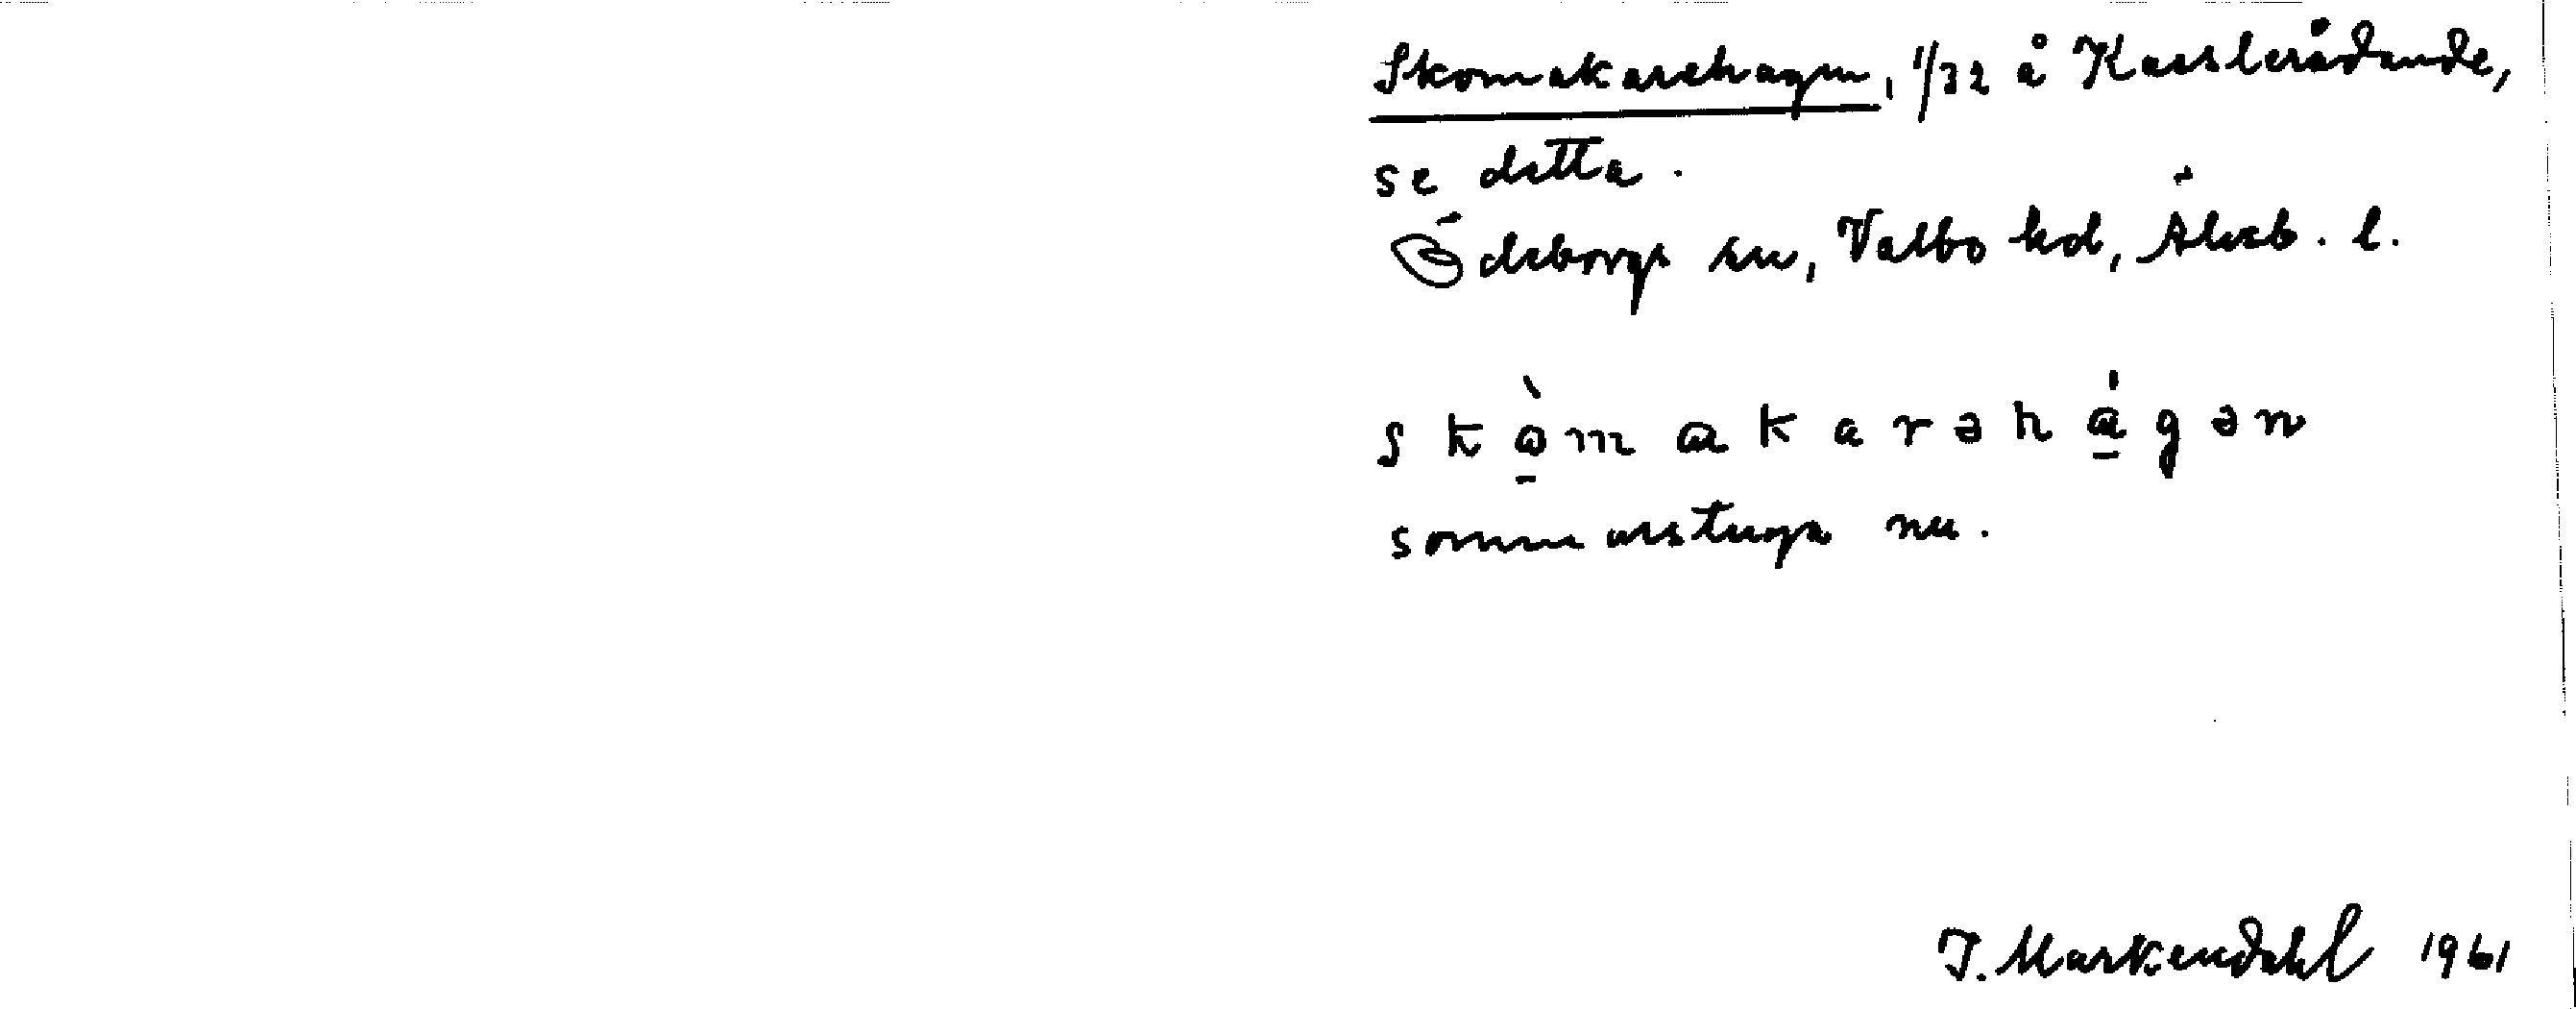 Skomakarehagen, 1/32 å Kasslerådande,
se detta.
Ödeborgs sn, Valbo hd, Älvsb. l.
skò̱makarəhá̱gən
sommarstuga nu.
J. Markendahl 1961